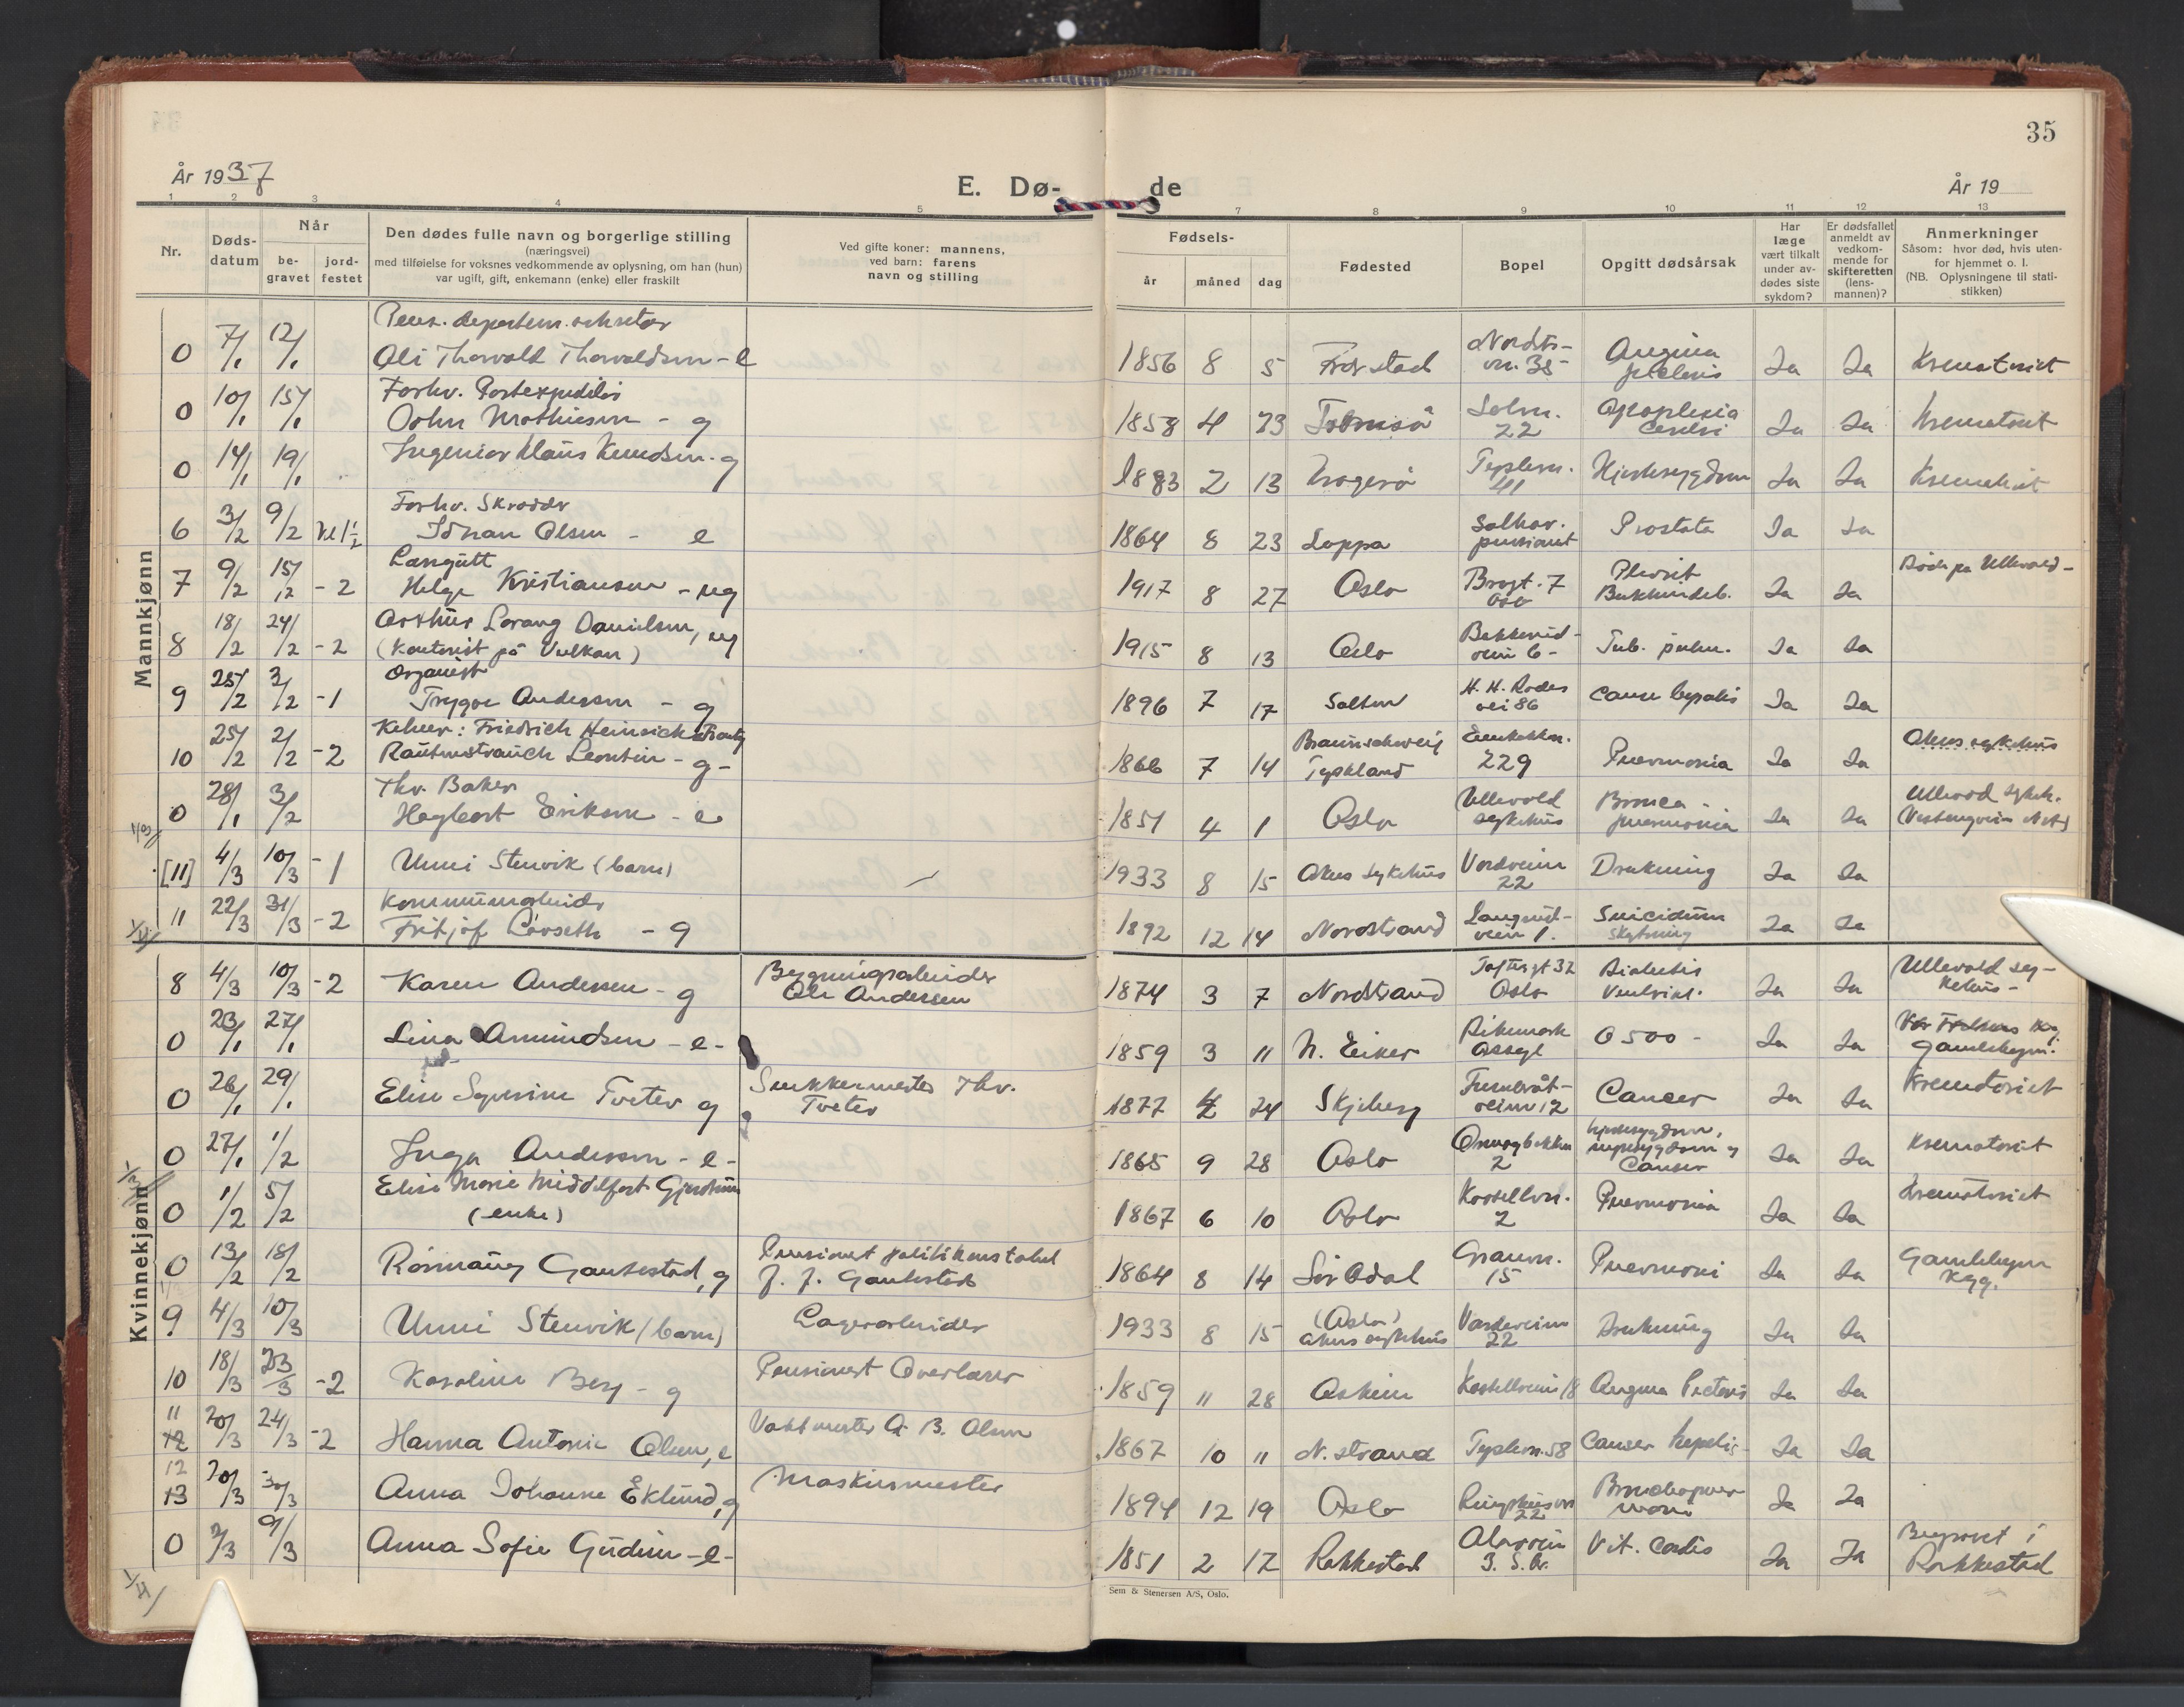 35
År 1937
E. Dø-
de
År 19
1 2 3 4 5 7 8 9 10 11 12 13
Nr.
Døds-
datum
Når
be-
gravet
jord-
festet
Den dødes fulle navn og borgerlige stilling
(næringsvei)
med tilføielse for voksnes vedkommende av oplysning, om han (hun)
var ugift, gift, enkemann (enke) eller fraskilt
Ved gifte koner: mannens,
ved barn: farens
navn og stilling
Fødsels-
år
måned
dag
Fødested
Bopel
Opgitt dødsårsak
Har
læge
vært tilkalt
under av-
dødes siste
sykdom?
Er dødsfallet
anmeldt av
vedkom-
mende for
skifteretten
(lens-
mannen)?
Anmerkninger
Såsom: hvor død, hvis uten-
for hjemmet o. l.
(NB. Oplysningene til stati-
stikken)
Mannkjønn
0 7/1 12/1 Ole Thorvald Thorvaldsen - e 1856 8 5 Angina pectoris Ja Ja Krematoriet
0 10/1 15/1 Forhv. Postexpeditør
Mathiesen - g 1858 4 23 Tromsø 22 Apoplexia cerebri Ja Ja Krematoriet
0 14/1 19/1 Ingeniør Klaus Knudsen - g 1883 2 13 Kragerø 41 Hjertesygdom Ja Ja Krematoriet
6 3/2 9/2 Forhv. Skrædder
Johan Olsen - e 1864 8 23 Loppa Prostata Ja Ja
7 9/2 15/2 - 2 Langutt
Helge Kristiansen - ug 1917 8 27 Oslo Oslo Ja Ja
8 18/2 24/2 - 2 Arthur Lorang Danielsen, ug
(Kontorist på Vulkan) 1915 8 13 Oslo Tub. pulm. Ja Ja
9 25/2 3/2 - 1 Organist
Trygve Andersen - g 1896 7 17 H. H. Rodes vei 86 Ja Ja
10 25/2 2/2 - 2 Kelner: Friedrich Heinrich
Rautenstrauch Leontin - g - 1866 7 14 Braunschweig Tyskland 229 Pneumonia Ja Ja Akers sykehus
0 28/1 3/2 Thv. Baker
Eriksen - e 1851 4 1 Oslo Ullevold sykehus Ja Ja
[11] 4/3 10/3 - 1 Unni Stenvik (barn) 1933 8 15 Akers sykehus 22 Drukning Ja Ja
11 22/3 31/3 - 2 Kommunearbeider
Fritjof Løvseth - g 1892 12 14 Nordstrand Suicidium
skytning Ja Ja
Kvinnekjønn
8 4/3 10/3 - 2 Karen Andersen - g Bygningsarbeider
Ole Andersen 1874 3 7 Nordstrand Toftesgt 32
Oslo Ja Ja Ullevold sy-
kehus -
0 23/1 27/1 Lina Amundsen - e - 1859 3 11 N. Eiker Dikemark
Asyl 0 500 - Ja Ja
0 26/1 29/1 Elise Severine Tveter g Snekkermester Thv.
Tveter 1877 24 Skjeberg Cancer Ja Ja Krematoriet
0 27/1 1/2 Inga Andersen - e - 1865 9 28 Oslo 2 Cancer Ja Ja Krematoriet
0 1/2 5/2 Elise Marie Middelfart
(enke) 1867 6 10 Oslo 2 Pneumonia Ja Ja Krematoriet
0 13/2 18/2 Gautestad, g Pensionert politikonstabel
J. J. Gautestad 1864 8 14 Sør Odal Granvn.
15 Pneumoni Ja Ja
9 4/3 10/3 Unni Stenvik (barn) Lagerarbeider 1933 8 15 (Oslo)
Akers sykehus 22 Drukning Ja Ja
10 18/3 23/3 - 2 Karoline Berg - g Pensionert Overlærer 1859 11 28 Askim Kastellveien 18 Angina Pectoris Ja Ja
11 20/3 24/3 - 2 Hanna Antonie Olsen, e Vaktmester A. B. Olsen 1867 10 11 N. strand 58 Cancer hepatis Ja Ja
12 20/3 30/3 Anna Johanne Eklund, g Maskinmester 1894 12 19 Oslo 22 Ja Ja
0 2/3 9/3 Anna Sofie Gudim - e - 1851 2 17 Rakkestad Vit. Cordis Ja Ja Begravet i
Rakkestad
Sem & Stenersen A/S, Oslo.